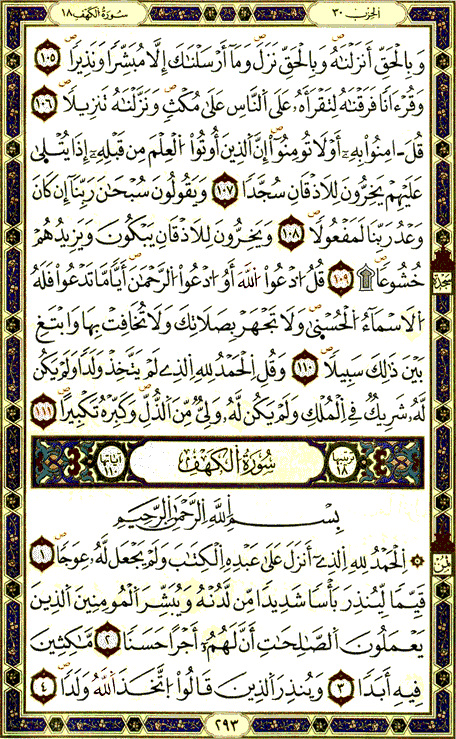 الحزب ٣٠
سورة الكهف ١٨
وَبِالْحَقِّ أَنزَلْنَٰهُ وَبِالْحَقِّ نَزَلَ وَمَا أَرْسَلْنَٰكَ إِلَّا مُبَشِّرًا وَنَذِيرًا ١٠٥
وَقُرْءَانًا فَرَقْنَٰهُ لِتَقْرَأَهُۥ عَلَى النَّاسِ عَلَىٰ مُكْثٍ وَنَزَّلْنَٰهُ تَنزِيلًا ١٠٦
قُلَ ـامِنُوا بِهِۦٓ أَوْ لَا تُومِنُوٓا إِنَّ الَّذِينَ أُوتُوا الْعِلْمَ مِن قَبْلِهِۦٓ إِذَا يُتْلَىٰ
عَلَيْهِمْ يَخِرُّونَ لِلَاذْقَانِ سُجَّدًا ١٠٧ وَيَقُولُونَ سُبْحَٰنَ رَبِّنَآ إِن كَانَ
وَعْدُ رَبِّنَا لَمَفْعُولًا ١٠٨ وَيَخِرُّونَ لِلَاذْقَانِ يَبْكُونَ وَيَزِيدُهُمْ
خُشُوعًا ۩ ١٠٩ قُلُ ادْعُوا اللَّهَ أَوُ ادْعُوا الرَّحْمَٰنَ أَيًّا مَّا تَدْعُوا فَلَهُ
الَاسْمَآءُ الْحُسْنَىٰ وَلَا تَجْهَرْ بِصَلَاتِكَ وَلَا تُخَافِتْ بِهَا وَابْتَغِ
بَيْنَ ذَٰلِكَ سَبِيلًا ١١٠ وَقُلِ الْحَمْدُ لِلهِ الَّذِي لَمْ يَتَّخِذْ وَلَدًا وَلَمْ يَكُن
لَّهُۥ شَرِيكٌ فِي الْمُلْكِ وَلَمْ يَكُن لَّهُۥ وَلِيٌّ مِّنَ الذُّلِّ وَكَبِّرْهُ تَكْبِيرًا ١١١
سجدة
ترتيبها ١٨
سُورَةُ الْكَهْفِ
آياتها
بِسْمِ اللَّهِ الرَّحْمَٰنِ الرَّحِيمِ
۞ الْحَمْدُ لِلهِ الَّذِيٓ أَنزَلَ عَلَىٰ عَبْدِهِ الْكِتَٰبَ وَلَمْ يَجْعَل لَّهُۥ عِوَجًا ١
قَيِّمًا لِّيُنذِرَ بَأْسًا شَدِيدًا مِّن لَّدُنْهُ وَيُبَشِّرَ الْمُومِنِينَ الَّذِينَ
يَعْمَلُونَ الصَّٰلِحَٰتِ أَنَّ لَهُمُۥٓ أَجْرًا حَسَنًا ٢ مَّٰكِثِينَ
فِيهِ أَبَدًا ٣ وَيُنذِرَ الَّذِينَ قَالُوا اتَّخَذَ اللَّهُ وَلَدًا ٤
ثمن
٢٩٣